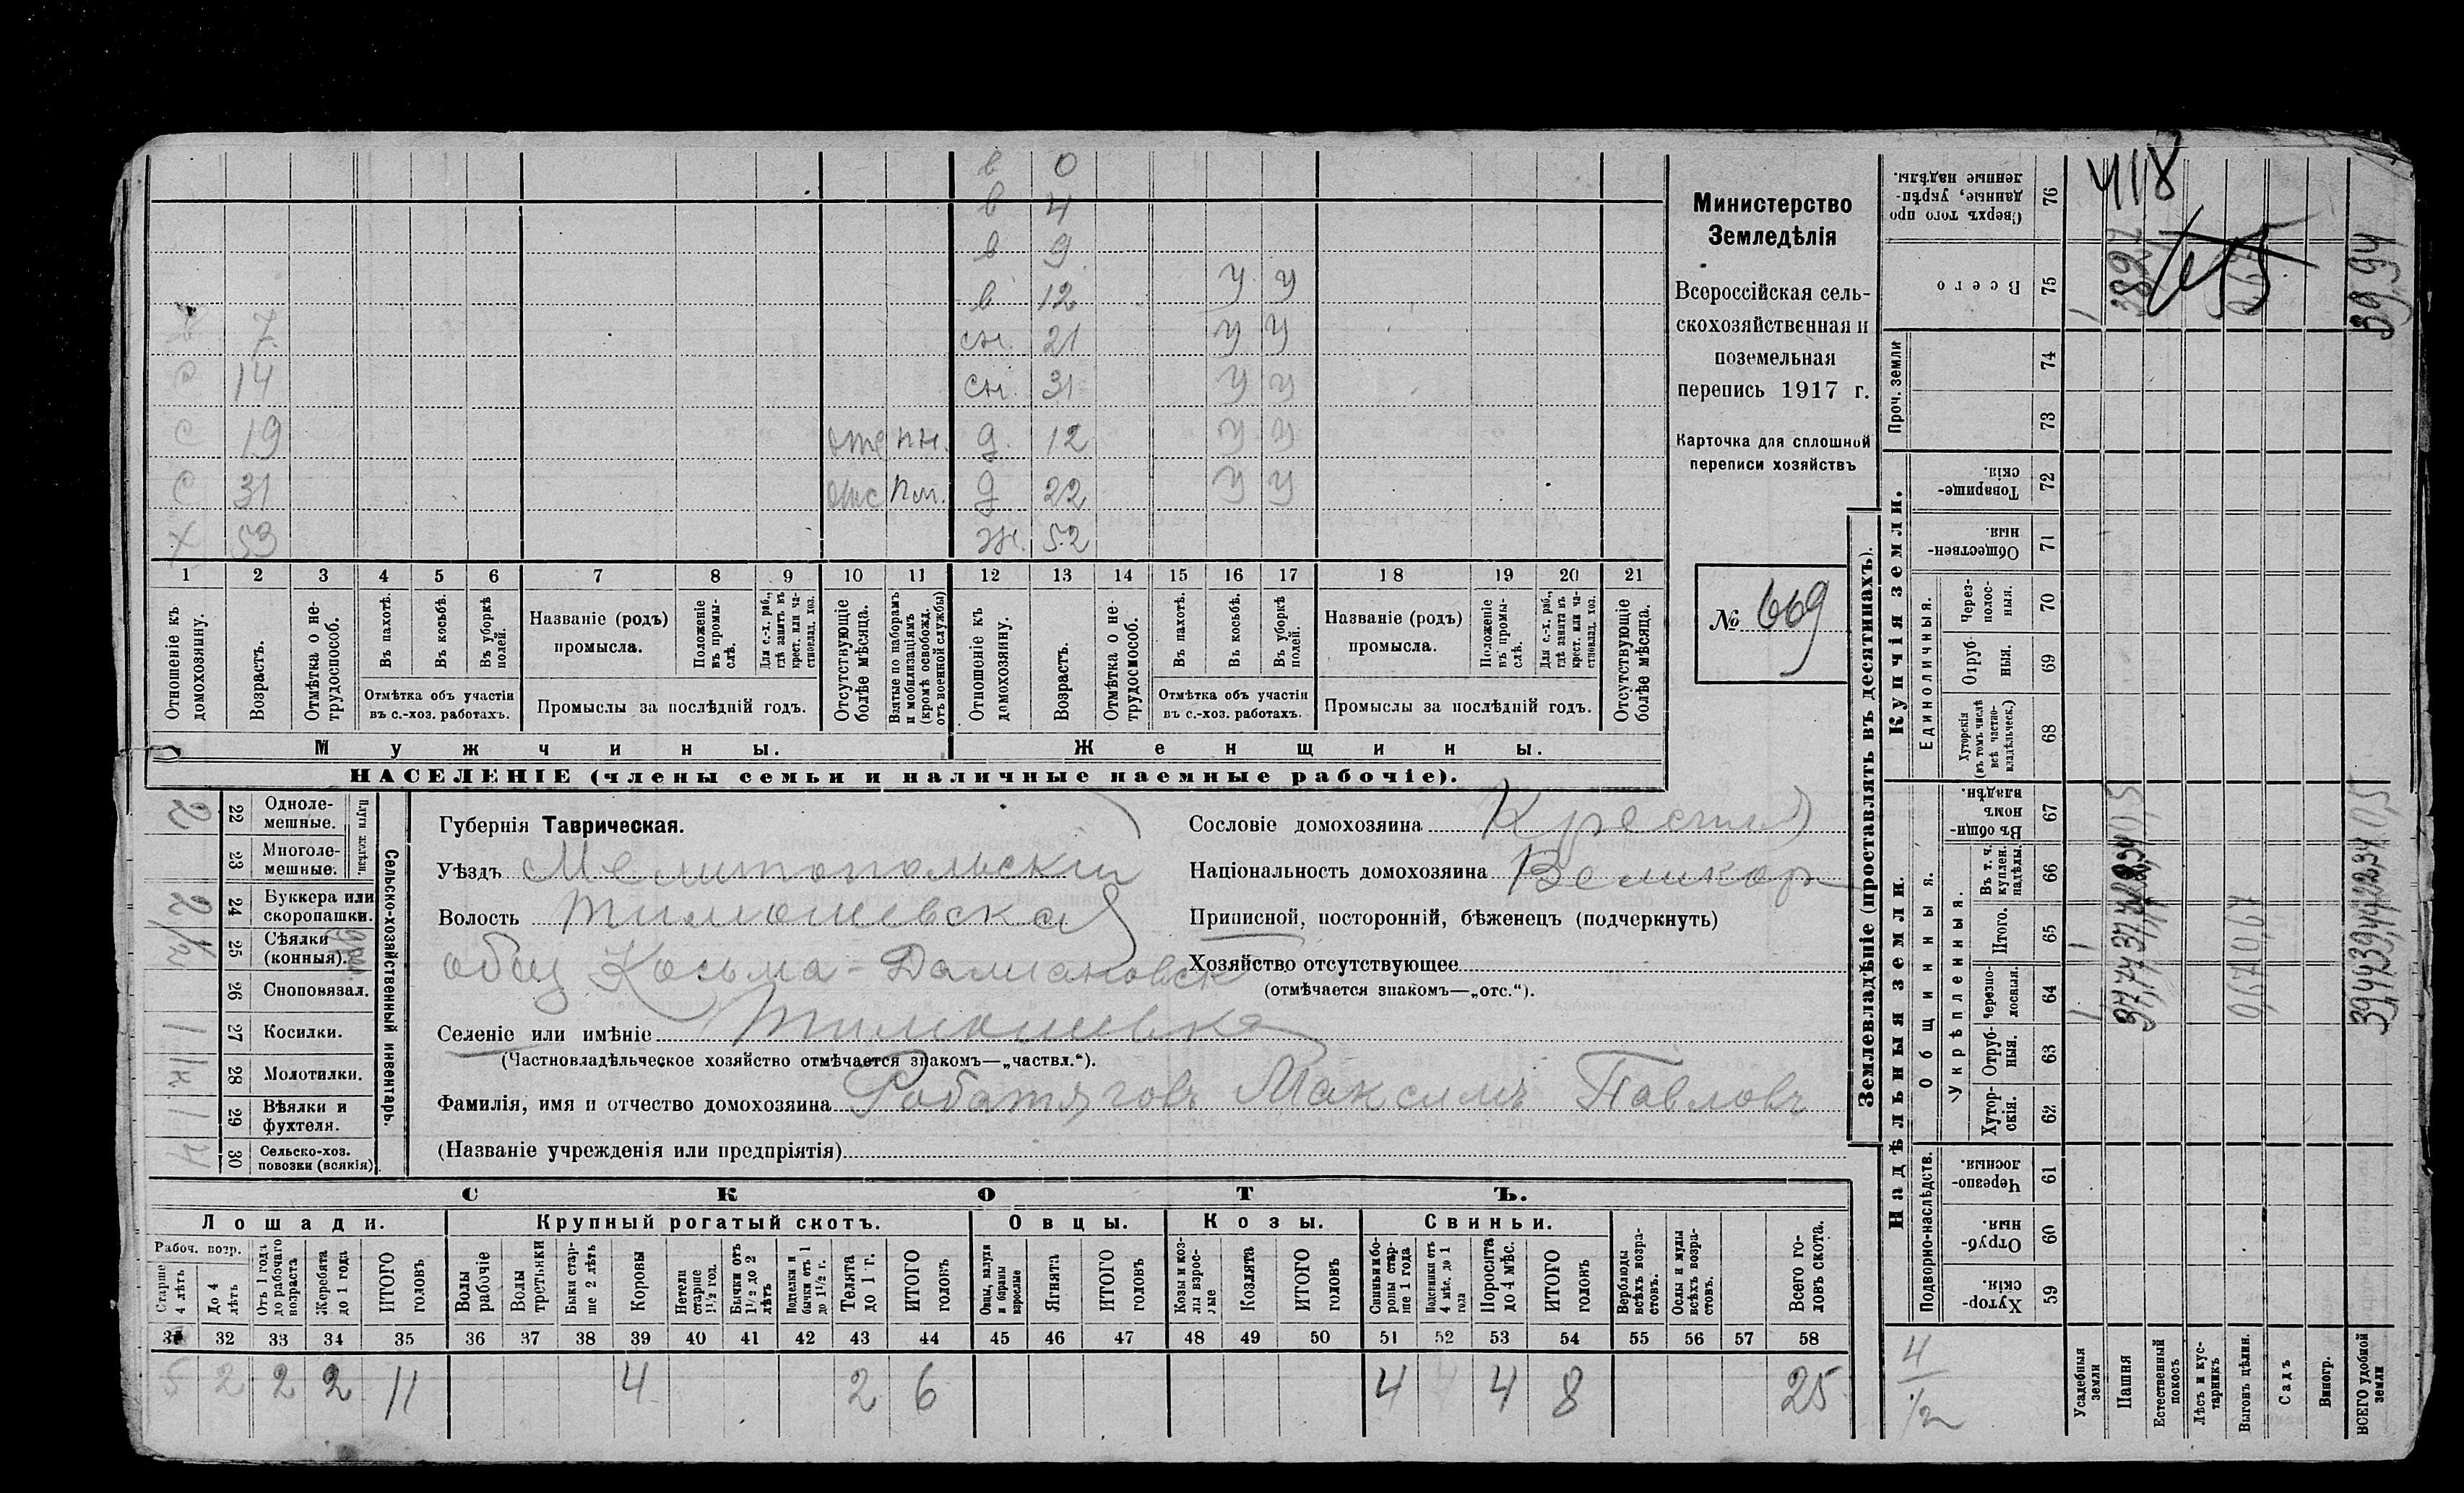 в 0
в 4
в 9
в 12 У У
7 сн. 21 У У
С 14 сн. 31 У У
С 19 отс пн. д. 12 У У
С 31 отс пм. д 22 У У
Х 53 ж. 52
1 2 3 4 5 6 7 8 9 10 11 12 13 14 15 16 17 18 19 20 21
Отношеніе къ домохозяину.
Возрастъ.
Отмѣтка о не-трудоспособ.
Въ пахотѣ.
Въ косьбѣ.
Въ уборкѣ полей.
Отмѣтка объ участіи
въ с.-хоз. работахъ.
Названіе (родъ)
промысла.
Положеніе въ промы-слѣ.
Для с.-х. раб., гдѣ занятъ въ крест. или ча-стновлад. хоз.
Промыслы за послѣдній годъ.
Отсутствующіе болѣе мѣсяца.
Взятые по наборамъ и мобилизаціямъ (кромѣ освобожд. отъ военной службы)
Отношеніе къ домохозяину.
Возрастъ.
Отмѣтка о не-трудоспособ.
Въ пахотѣ.
Въ косьбѣ.
Въ уборкѣ полей.
Отмѣтка объ участіи
въ с.-хоз. работахъ.
Названіе (родъ)
промысла.
Положеніе въ промы-слѣ.
Для с.-х. раб., гдѣ занята въ крест. или ча-стновлад. хоз.
Промыслы за послѣдній годъ.
Отсутствующіе болѣе мѣсяца.
Мужчины. Женщины.
НАСЕЛЕНІЕ (члены семьи и наличные наемные рабочіе).
Министерство
Земледѣлія
Всероссійская сель-
скохозяйственная и
поземельная
перепись 1917 г.
Карточка для сплошной
переписи хозяйствъ
№ 669
Сельско-хозяйственный инвентарь.
Плуги желѣзн.
2 22 Одноле-мешные.
23 Многоле-мешные.
2 24 Буккера или скоропашки.
25 Сѣялки (конныя).
26 Сноповязал.
1 27 Косилки.
1к 28 Молотилки.
1 29 Вѣялки и фухтеля.
4 30 Сельско-хоз. повозки (всякія)
Губернія Таврическая.
Уѣздъ Мелитопольскій
Волость Тимошевская
общ Косьма-Даміановск
Селеніе или имѣніе Тимошевка
(Частновладѣльческое хозяйство отмѣчается знакомъ—„частвл.“).
Фамилія, имя и отчество домохозяина Робатяговъ Максимъ Павловъ
(Названіе учрежденія или предпріятія)
Сословіе домохозяина Крестья
Національность домохозяина Великор
Приписной, посторонній, бѣженецъ (подчеркнуть)
Хозяйство отсутствующее
(отмѣчается знакомъ—„отс.“).
СКОТЪ.
Лошади. Крупный рогатый скотъ. Овцы. Козы. Свиньи.
Рабоч. возр.
Старше 4 лѣтъ
До 4 лѣтъ
Отъ 1 года до рабочаго возраста
Жеребята до 1 года
ИТОГО головъ
Волы рабочіе
Волы третьяки
Быки стар-ше 2 лѣтъ
Коровы
Нетели старше 1½ год.
Бычки отъ 1½ до 2 лѣтъ
Подтелки и бычки отъ 1 до 1½ г.
Телята до 1 г.
ИТОГО головъ
Овцы, валухи и бараны взрослые
Ягнята
ИТОГО головъ
Козы и коз-лы взрос-лые
Козлята
ИТОГО головъ
Свиньи и бо-ровы стар-ше 1 года
Подсвинки отъ 4 мѣс. до 1 года
Поросята до 4 мѣс.
ИТОГО головъ
Верблюды всѣхъ возра-стовъ.
Ослы и мулы всѣхъ возра-стовъ.
Всего го-ловъ скота.
31 32 33 34 35 36 37 38 39 40 41 42 43 44 45 46 47 48 49 50 51 52 53 54 55 56 57 58
5 2 2 2 11 4 2 6 4 4 8 25
Землевладѣніе (проставлять въ десятинахъ).
Купчія земли.
Надѣльныя земли.
Сверхъ того про-данные, укрѣп-ленные надѣлы. 76
418
Всего 75
1 39,94
Проч. земли 74
73
Товарище-скія. 72
Обществен-ныя 71
Единоличныя.
Через-полос-ныя. 70
Отруб-ныя. 69
Хуторскія (въ томъ числѣ всѣ частно-владѣльческ.) 68
Общинныя.
Въ общи-номъ владѣн. 67
Укрѣпленныя.
Въ т. ч. куплен. надѣлы. 66
Итого. 65
Черезпо-лосныя. 64
Отруб-ныя. 63
Хутор-скія. 62
Подворно-наслѣдств.
Черезпо-лосныя. 61
Отруб-ныя. 60
Хутор-скія. 59
4
1/2
Усадебныя земли
Пашня
Естественный покосъ
Лѣсъ и кус-тарникъ
Выгонъ цѣлин.
Садъ
Виногр.
ВСЕГО удобной земли